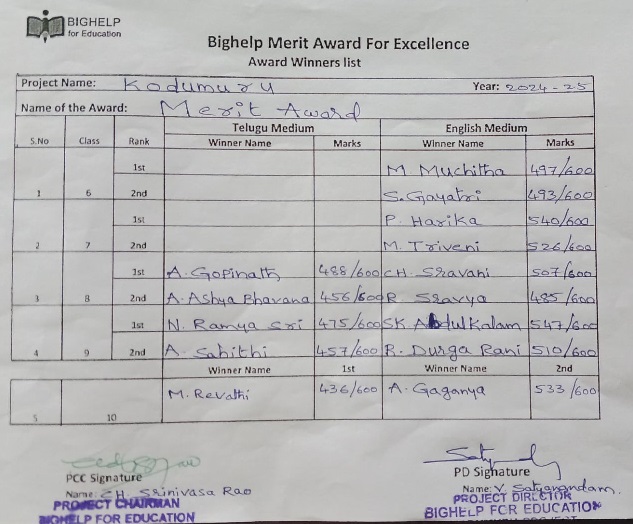 BIGHELP
for Education
Bighelp Merit Award For Excellence
Award Winners list
Project Name: Kodumuru Year: 2024-25
Name of the Award: Merit Award
Telugu Medium English Medium
S.No Class Rank Winner Name Marks Winner Name Marks
1st M. Muchitha 497/600
1 6 2nd S. Gayatri 493/600
1st P. Harika 540/600
2 7 2nd M. Triveni 526/600
1st A. Gopinath 488/600 CH. Sravani 507/600
3 8 2nd A. Ashya Bhavana 456/600 R. Sravya 485/600
1st N. Ramya Sri 475/600 SK. Abdul Kalam 547/600
4 9 2nd A. Sahithi 457/600 R. Durga Rani 510/600
Winner Name 1st Winner Name 2nd
M. Revathi 436/600 A. Gaganya 533/600
5 10
PCC Signature PD Signature
Name: CH. Srinivasa Rao Name: V. Satyanandam.
PROJECT CHAIRMAN PROJECT DIRECTOR
BIGHELP FOR EDUCATION BIGHELP FOR EDUCATION